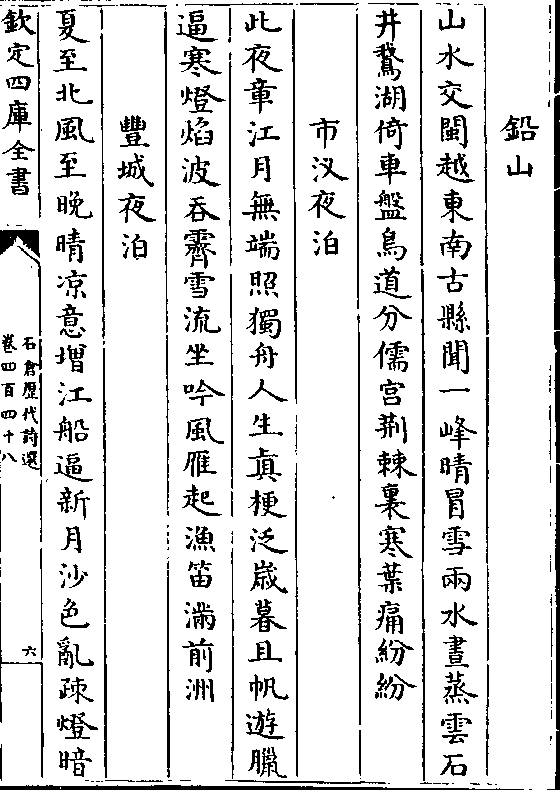 鉛山
山水交閩越東南古縣聞一峰晴冒雪兩水晝蒸雲石
井鵞湖倚車盤鳥道分儒宫荆棘裏寒葉痛紛紛
市汊夜泊
此夜章江月無端照獨舟人生真梗泛嵗暮且帆遊臘
逼寒燈焰波吞霽雪流坐吟風雁起漁笛滿前洲
豐城夜泊
夏至北風至晩晴凉意增江船逼新月沙色亂疎燈暗
欽定四庫全書
石倉歴代詩選
卷四百四十八
六